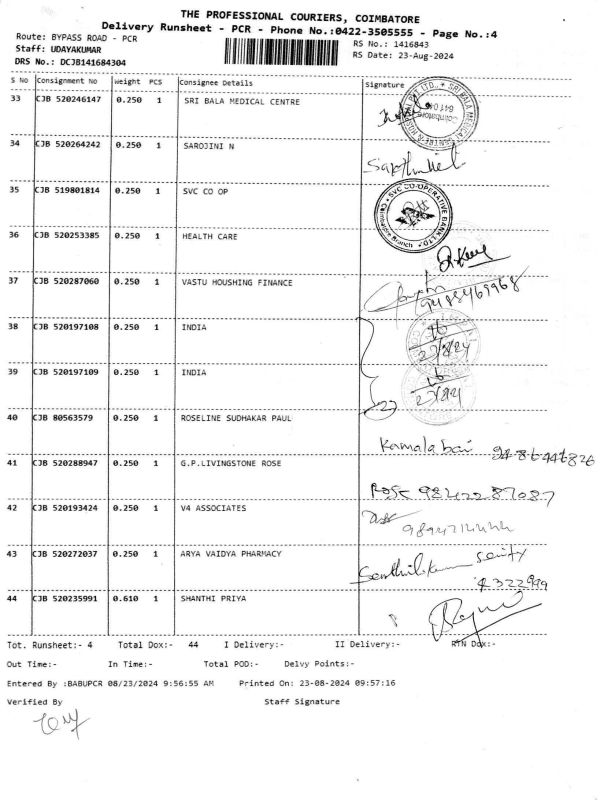 THE PROFESSIONAL COURIERS, COIMBATORE
Delivery Runsheet - PCR - Phone No.:0422-3505555 - Page No.:4
Route: BYPASS ROAD - PCR
RS No.: 1416843
Staff: UDAYAKUMAR
RS Date: 23-Aug-2024
DRS No.: DCJB141684304
S No Consignment No Weight PCS Consignee Details Signature
33 CJB 520246147 0.250 1 SRI BALA MEDICAL CENTRE
34 CJB 520264242 0.250 1 SAROJINI N
35 CJB 519801814 0.250 1 SVC CO OP
SVC CO-OPERATIVE BANK LTD.
Coimbatore Branch
36 CJB 520253385 0.250 1 HEALTH CARE
37 CJB 520287060 0.250 1 VASTU HOUSHING FINANCE
9488469968
38 CJB 520197108 0.250 1 INDIA
23/8/24
39 CJB 520197109 0.250 1 INDIA
40 CJB 80563579 0.250 1 ROSELINE SUDHAKAR PAUL
Kamala bai 9486446826
41 CJB 520288947 0.250 1 G.P.LIVINGSTONE ROSE
Rose 9842287087
42 CJB 520193424 0.250 1 V4 ASSOCIATES
43 CJB 520272037 0.250 1 ARYA VAIDYA PHARMACY
Senthilkumar
4322999
44 CJB 520235991 0.610 1 SHANTHI PRIYA
Tot. Runsheet:- 4 Total Dox:- 44 I Delivery:- II Delivery:- RTN Dox:-
Out Time:- In Time:- Total POD:- Delvy Points:-
Entered By :BABUPCR 08/23/2024 9:56:55 AM Printed On: 23-08-2024 09:57:16
Verified By Staff Signature